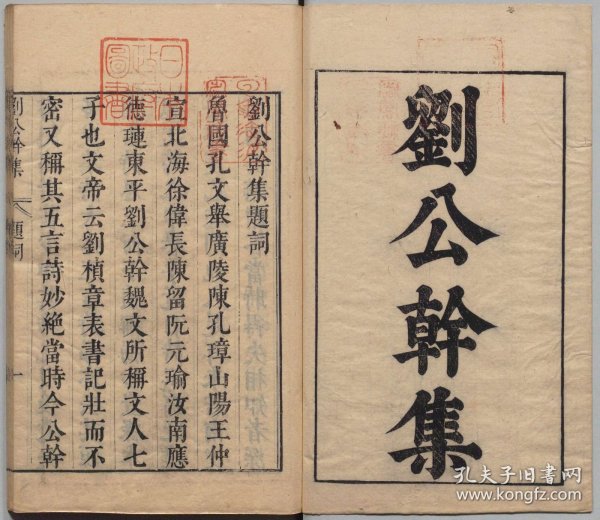 劉公幹集
劉公幹集題詞
魯國孔文舉廣陵陳孔璋山陽王仲
宣北海徐偉長陳留阮元瑜汝南應
德璉東平劉公幹魏文所稱文人七
子也文帝云劉楨章表書記壯而不
密又稱其五言詩妙絕當時今公幹
劉公幹集
題詞
一
孔夫子旧書网
www.kongfz.com